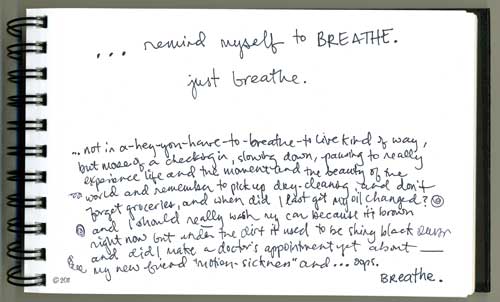 ... remind myself to BREATHE.
just breathe.
... not in a-hey-you-have-to-breathe-to live kind of way,
but more of a checking in, slowing down, pausing to really
experience life and the moment and the beauty of the
world and remember to pick up dry-cleaning and don't
forget groceries, and when did I last get my oil changed?
and I should really wash my car because it's brown
right now but under the dirt it used to be shiny black
and did I make a doctor's appointment yet about
my new friend "motion-sickness" and ... oops.
Breathe.
© 2011